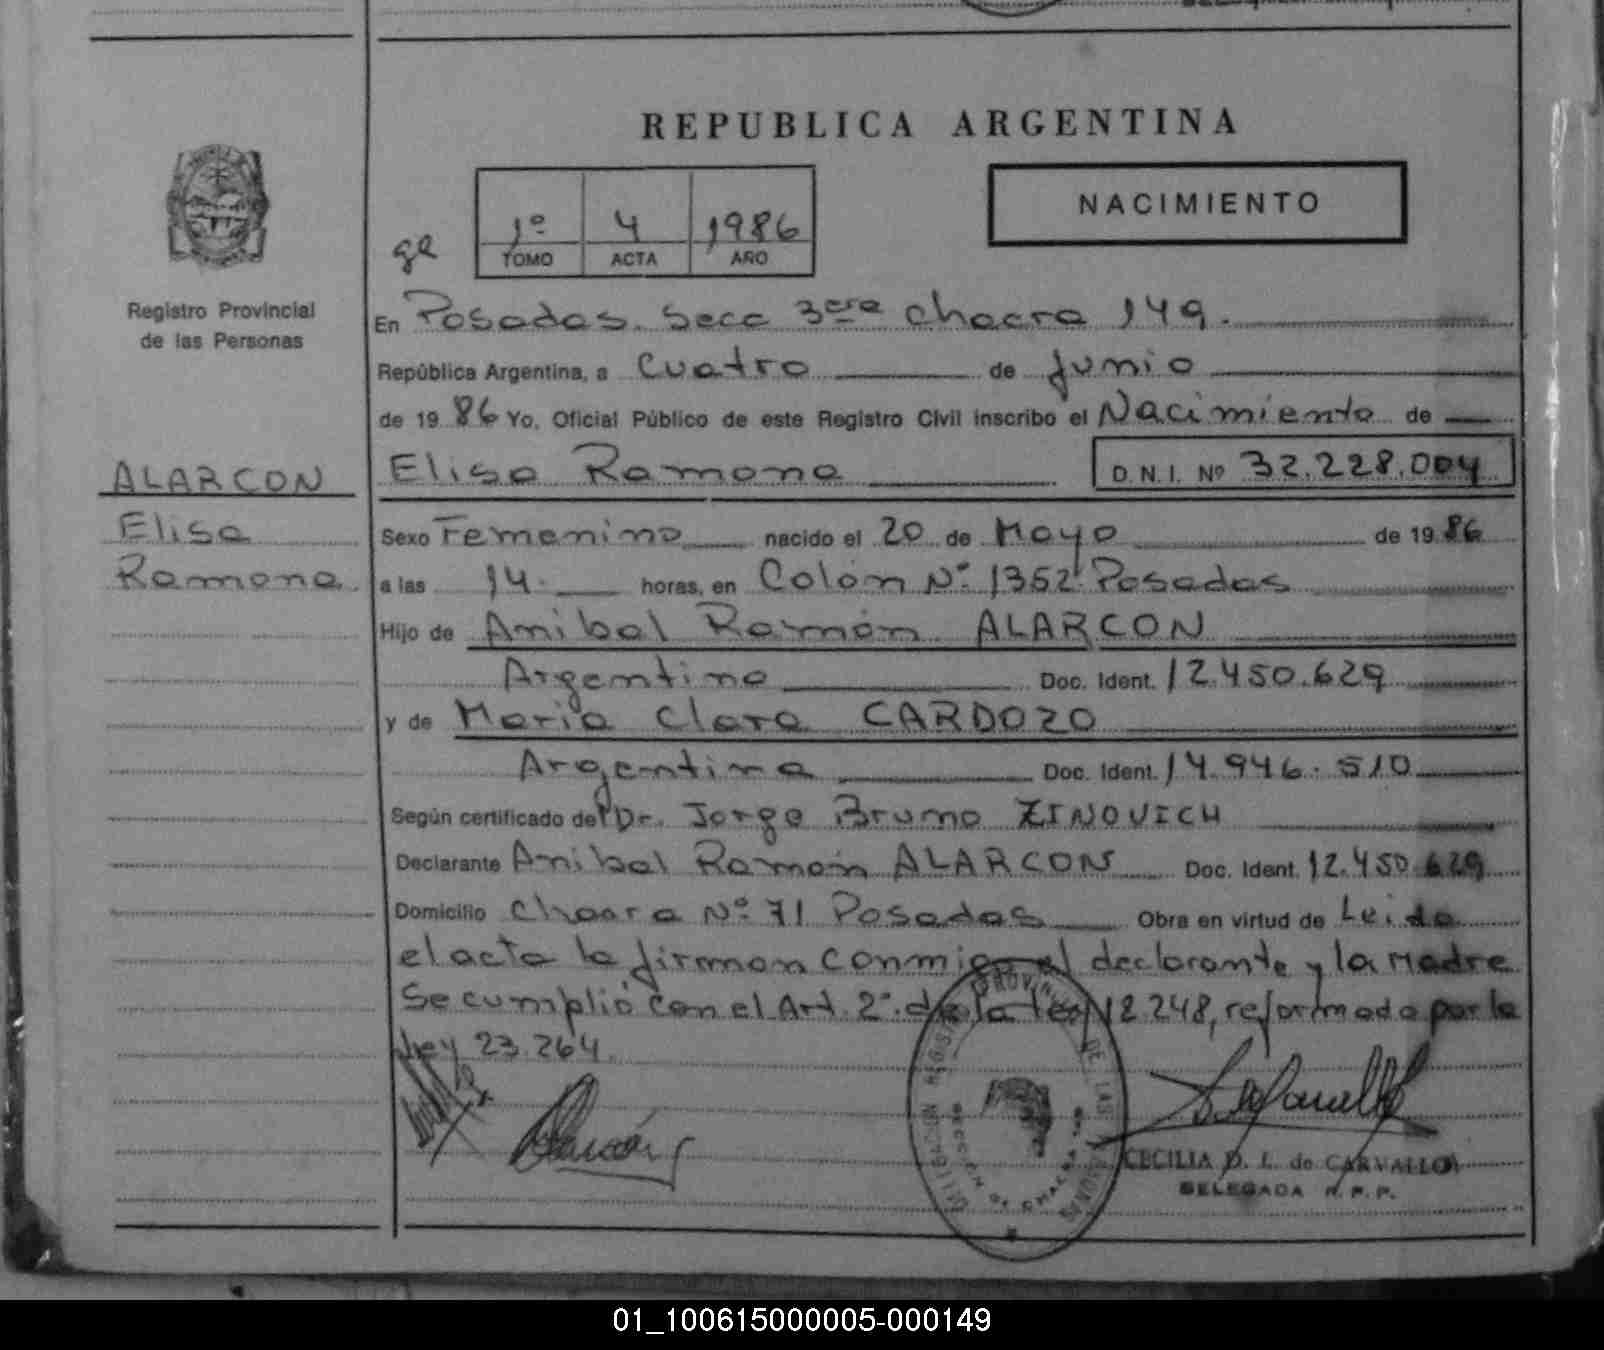 REPUBLICA ARGENTINA
NACIMIENTO
1º 4 1986
TOMO ACTA AÑO
Registro Provincial
de las Personas
En Posadas. Secc 3era chacra 149.
República Argentina, a Cuatro de Junio
de 1986 Yo, Oficial Público de este Registro Civil inscribo el Nacimiento de
Elisa Ramona D.N.I. Nº 32.228.004
ALARCON
Elisa
Ramona
Sexo Femenino nacido el 20 de Mayo de 1986
a las 14. horas, en Colón Nº 1352 Posadas
Hijo de Anibal Ramón ALARCON
Argentino Doc. Ident. 12.450.629
y de Maria Clara CARDOZO
Argentina Doc. Ident. 14.946.510
Según certificado del Dr. Jorge Bruno ZINOVICH
Declarante Anibal Ramón ALARCON Doc. Ident. 12.450.629
Domicilio Chacra Nº 71 Posadas Obra en virtud de Leida
el acta la firman conmigo el declarante y la Madre
Se cumplió con el Art. 2º. de la Ley 18.248, reformada por la
Ley 23.264.
CECILIA D. L. de CARVALLO
DELEGADA R.P.P.
01_100615000005-000149